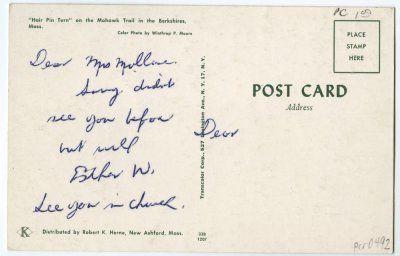 "Hair Pin Turn" on the Mohawk Trail in the Berkshires,
Mass.
Color Photo by Winthrop P. Moore
Dear Mrs
Sorry didn't
see you before
but will
Esther W.
See you in church.
Dear
Distributed by Robert K. Horne, New Ashford, Mass.
K
Transcolor Corp., 527 Ave., N. Y. 17, N. Y.
338
1207
POST CARD
Address
PLACE
STAMP
HERE
PC 1.00
pcr0492